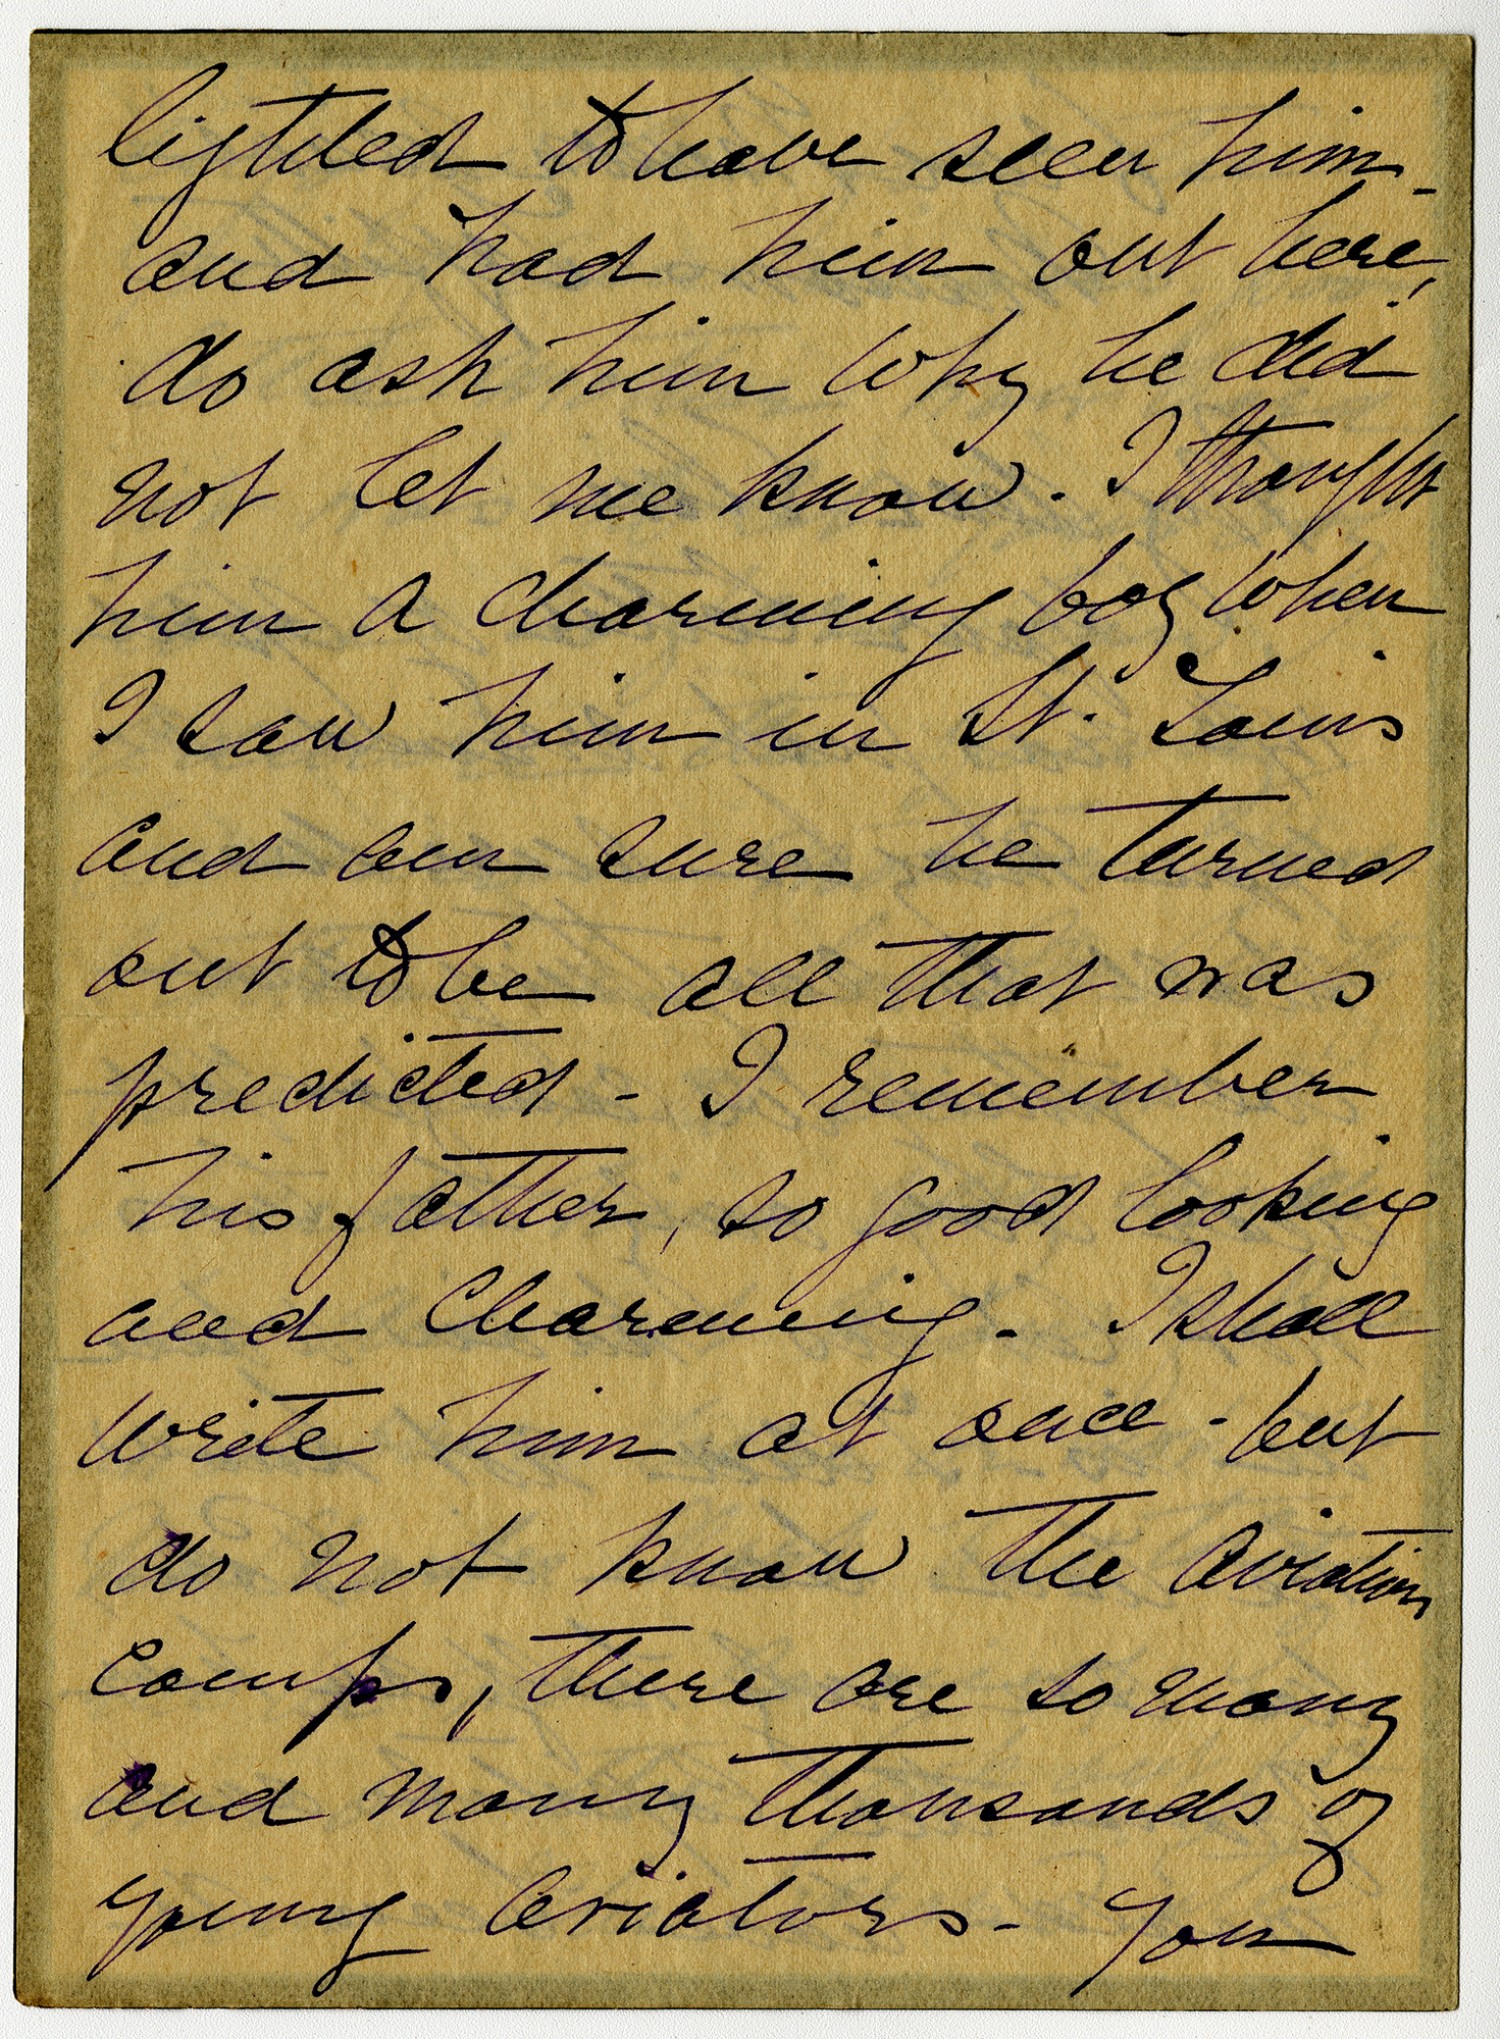 lighted to have seen him -
and had him out here,
do ask him why he did
not let me know. I thought
him a charming boy when
I saw him in St. Louis
and am sure he turned
out to be all that was
predicted - I remember
his father, so good looking
and charming - I shall
write him at once - but
do not know the aviation
camps, there are so many
and many thousands of
young aviators - You